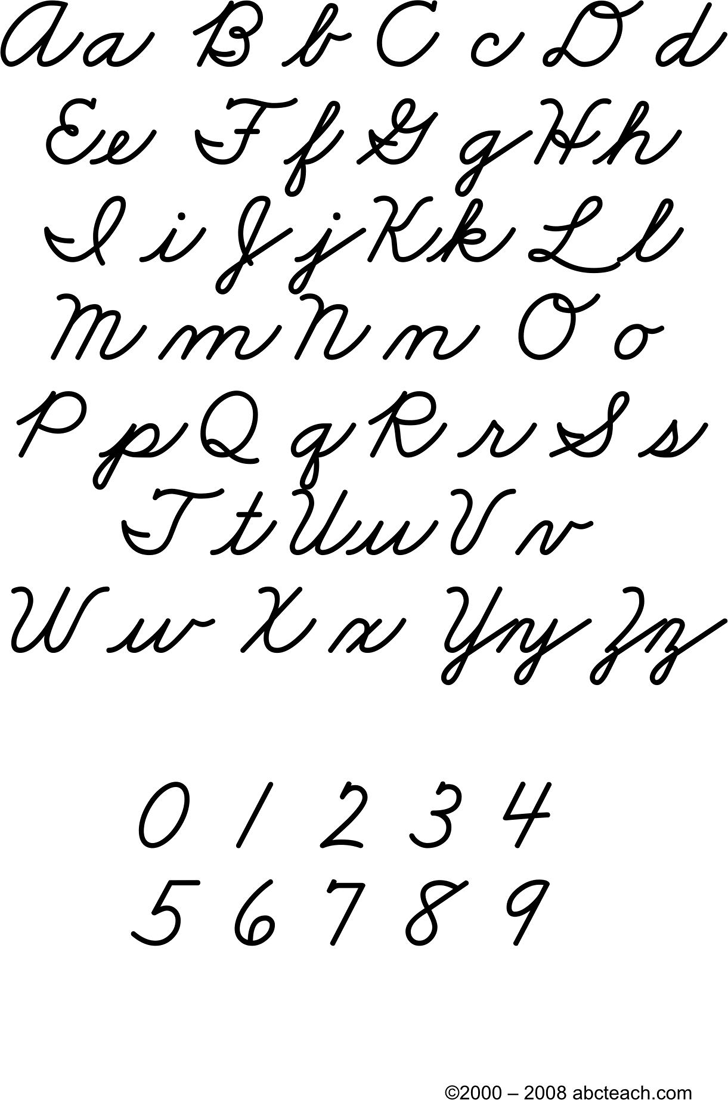 Aa Bb Cc Dd
Ee Ff Gg Hh
Ii Jj Kk Ll
Mm Nn Oo
Pp Qq Rr Ss
Tt Uu Vv
Ww Xx Yy Zz
0 1 2 3 4
5 6 7 8 9
©2000 – 2008 abcteach.com